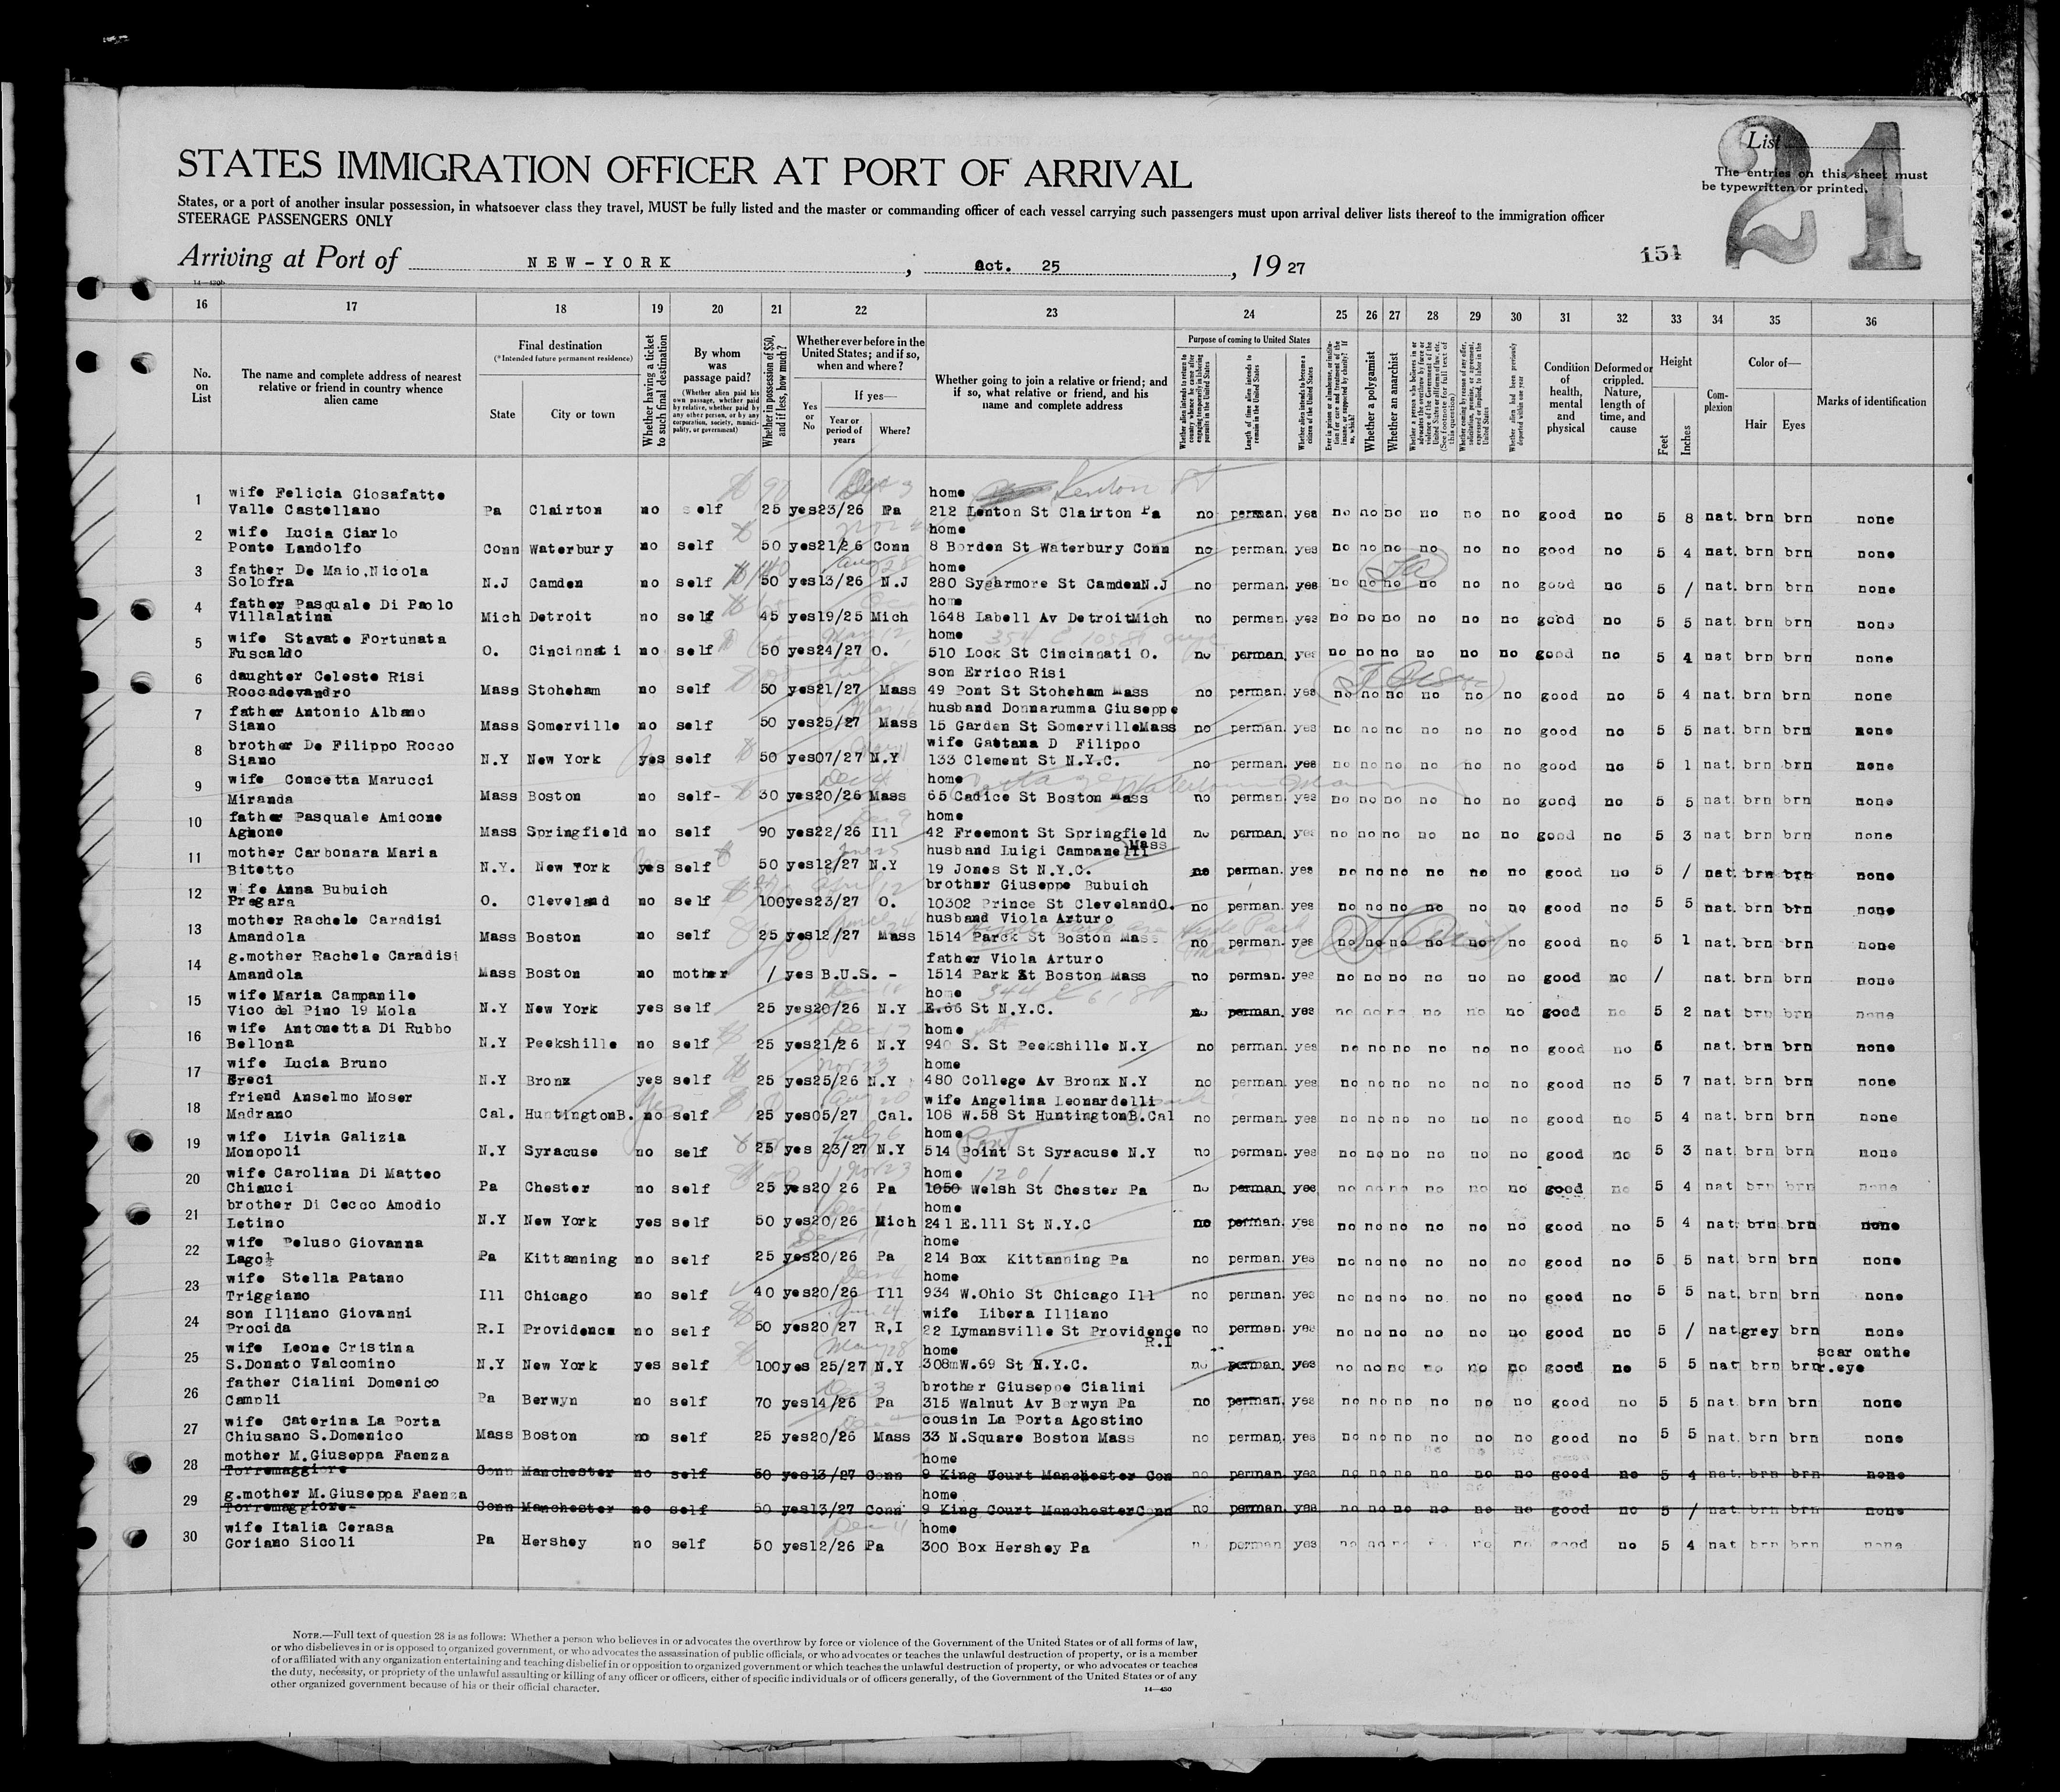 List
21
The entries on this sheet must
be typewritten or printed.
STATES IMMIGRATION OFFICER AT PORT OF ARRIVAL
States, or a port of another insular possession, in whatsoever class they travel, MUST be fully listed and the master or commanding officer of each vessel carrying such passengers must upon arrival deliver lists thereof to the immigration officer
STEERAGE PASSENGERS ONLY
Arriving at Port of NEW-YORK, Oct. 25, 19 27
154
16 17 18 19 20 21 22 23 24 25 26 27 28 29 30 31 32 33 34 35 36
No. on List
The name and complete address of nearest relative or friend in country whence alien came
Final destination
(*Intended future permanent residence)
State
City or town
Whether having a ticket to such final destination
By whom was passage paid?
(Whether alien paid his own passage, whether paid by relative, whether paid by any other person, or by any corporation, society, municipality, or government)
Whether in possession of $50, and if less, how much?
Whether ever before in the United States; and if so, when and where?
Yes or No
If yes—
Year or period of years
Where?
Whether going to join a relative or friend; and if so, what relative or friend, and his name and complete address
Purpose of coming to United States
Length of time alien intends to remain in the United States
Whether alien intends to become a citizen of the United States
Whether a polygamist
Whether an anarchist
Condition of health, mental and physical
Deformed or crippled. Nature, length of time, and cause
Height
Feet
Inches
Complexion
Color of—
Hair
Eyes
Marks of identification
1 wife Felicia Giosafatte home
Valle Castellano Pa Clairton no self 25 yes 23/26 Pa 212 Lenton St Clairton Pa no perman. yes no no no no no no good no 5 8 nat. brn brn none
2 wife Lucia Ciarlo home
Ponte Landolfo Conn Waterbury no self 50 yes 21/26 Conn 8 Borden St Waterbury Conn no perman. yes no no no no no no good no 5 4 nat. brn brn none
3 father De Maio,Nicola home
Solofra N.J Camden no self 50 yes 13/26 N.J 280 Sycarmore St Camden N.J no perman. yes no no no no no no good no 5 / nat. brn brn none
4 father Pasquale Di Paolo home
Villalatina Mich Detroit no self 45 yes 19/25 Mich 1648 Labell Av Detroit Mich no perman. yes no no no no no no good no 5 5 nat. brn brn none
5 wife Stavate Fortunata home
Fuscaldo O. Cincinnati no self 50 yes 24/27 O. 510 Lock St Cincinnati O. no perman. yes no no no no no no good no 5 4 nat brn brn none
6 daughter Celeste Risi son Errico Risi
Roccadevandro Mass Stoheham no self 50 yes 21/27 Mass 49 Pont St Stoheham Mass no perman. yes no no no no no no good no 5 4 nat. brn brn none
7 father Antonio Albano husband Donnarumma Giuseppe
Siano Mass Somerville no self 50 yes 25/27 Mass 15 Garden St Somerville Mass no perman. yes no no no no no no good no 5 5 nat. brn brn none
8 brother De Filippo Rocco wife Gaetana D Filippo
Siano N.Y New York yes self 50 yes 07/27 N.Y 133 Clement St N.Y.C. no perman. yes no no no no no no good no 5 1 nat. brn brn none
9 wife Concetta Marucci home
Miranda Mass Boston no self- 30 yes 20/26 Mass 65 Cadice St Boston Mass no perman. yes no no no no no no good no 5 5 nat. brn brn none
10 father Pasquale Amicone home
Agnone Mass Springfield no self 90 yes 22/26 Ill 42 Freemont St Springfield Mass no perman. yes no no no no no no good no 5 3 nat. brn brn none
11 mother Carbonara Maria husband Luigi Campanelli
Bitetto N.Y. New York yes self 50 yes 12/27 N.Y 19 Jones St N.Y.C. no perman. yes no no no no no no good no 5 / nat. brn brn none
12 wife Anna Bubuich brother Giuseppe Bubuich
Pregara O. Cleveland no self 100 yes 23/27 O. 10302 Prince St Cleveland O. no perman. yes no no no no no no good no 5 5 nat. brn brn none
13 mother Rachele Caradisi husband Viola Arturo
Amandola Mass Boston no self 25 yes 12/27 Mass 1514 Parck St Boston Mass no perman. yes no no no no no no good no 5 1 nat. brn brn none
14 g.mother Rachele Caradisi father Viola Arturo
Amandola Mass Boston no mother / yes B.U.S. - 1514 Park St Boston Mass no perman. yes no no no no no no good no / nat. brn brn none
15 wife Maria Campanile home 344 E 61 St
Vico del Pino 19 Mola N.Y New York yes self 25 yes 20/26 N.Y E.66 St N.Y.C. no perman. yes no no no no no no good no 5 2 nat brn brn none
16 wife Antonetta Di Rubbo home
Bellona N.Y Peekshille no self 25 yes 21/26 N.Y 940 S. St Peekshille N.Y no perman. yes no no no no no no good no 5 nat. brn brn none
17 wife Lucia Bruno home
Greci N.Y Bronx yes self 25 yes 25/26 N.Y 480 College Av Bronx N.Y no perman. yes no no no no no no good no 5 7 nat. brn brn none
18 friend Anselmo Moser wife Angelina Leonardelli
Madrano Cal. Huntington B. no self 25 yes 05/27 Cal. 108 W.58 St Huntington B.Cal no perman. yes no no no no no no good no 5 4 nat. brn brn none
19 wife Livia Galizia home
Monopoli N.Y Syracuse no self 25 yes 23/27 N.Y 514 Point St Syracuse N.Y no perman. yes no no no no no no good no 5 3 nat. brn brn none
20 wife Carolina Di Matteo home 1201
Chiauci Pa Chester no self 25 yes 20 26 Pa 1050 Welsh St Chester Pa no perman. yes no no no no no no good no 5 4 nat brn brn none
21 brother Di Cecco Amodio home
Letino N.Y New York yes self 50 yes 20/26 Mich 241 E.111 St N.Y.C no perman. yes no no no no no no good no 5 4 nat. brn brn none
22 wife Peluso Giovanna home
Lago Pa Kittanning no self 25 yes 20/26 Pa 214 Box Kittanning Pa no perman. yes no no no no no no good no 5 5 nat. brn brn none
23 wife Stella Patano home
Triggiano Ill Chicago no self 40 yes 20/26 Ill 934 W.Ohio St Chicago Ill no perman. yes no no no no no no good no 5 5 nat. brn brn none
24 son Illiano Giovanni wife Libera Illiano
Procida R.I Providence no self 50 yes 20/27 R,I 22 Lymansville St Providence R.I no perman. yes no no no no no no good no 5 / nat. grey brn none
25 wife Leone Cristina home
S.Donato Valcomino N.Y New York yes self 100 yes 25/27 N.Y 308 W.69 St N.Y.C. no perman. yes no no no no no no good no 5 5 nat brn brn scar on the r.eye
26 father Cialini Domenico brother Giuseppe Cialini
Campli Pa Berwyn no self 70 yes 14/26 Pa 315 Walnut Av Berwyn Pa no perman. yes no no no no no no good no 5 5 nat. brn brn none
27 wife Caterina La Porta cousin La Porta Agostino
Chiusano S.Domenico Mass Boston no self 25 yes 20/26 Mass 33 N.Square Boston Mass no perman. yes no no no no no no good no 5 5 nat. brn brn none
28 mother M.Giuseppa Faenza home
Torremaggiore Conn Manchester no self 50 yes 13/27 Conn 9 King Court Manchester Con no perman. yes no no no no no no good no 5 4 nat. brn brn none
29 g.mother M.Giuseppa Faenza home
Torremaggiore- Conn Manchester no self 50 yes 13/27 Conn 9 King Court Manchester Conn no perman. yes no no no no no no good no 5 / nat brn brn none
30 wife Italia Cerasa home
Goriano Sicoli Pa Hershey no self 50 yes 12/26 Pa 300 Box Hershey Pa no perman. yes no no no no no no good no 5 4 nat brn brn none
NOTE.—Full text of question 28 is as follows: Whether a person who believes in or advocates the overthrow by force or violence of the Government of the United States or of all forms of law,
or who disbelieves in or is opposed to organized government, or who advocates the assassination of public officials, or who advocates or teaches the unlawful destruction of property, or is a member
of or affiliated with any organization entertaining and teaching disbelief in or opposition to organized government or which teaches the unlawful destruction of property, or who advocates or teaches
the duty, necessity, or propriety of the unlawful assaulting or killing of any officer or officers, either of specific individuals or of officers generally, of the Government of the United States or of any
other organized government because of his or their official character.
14—430